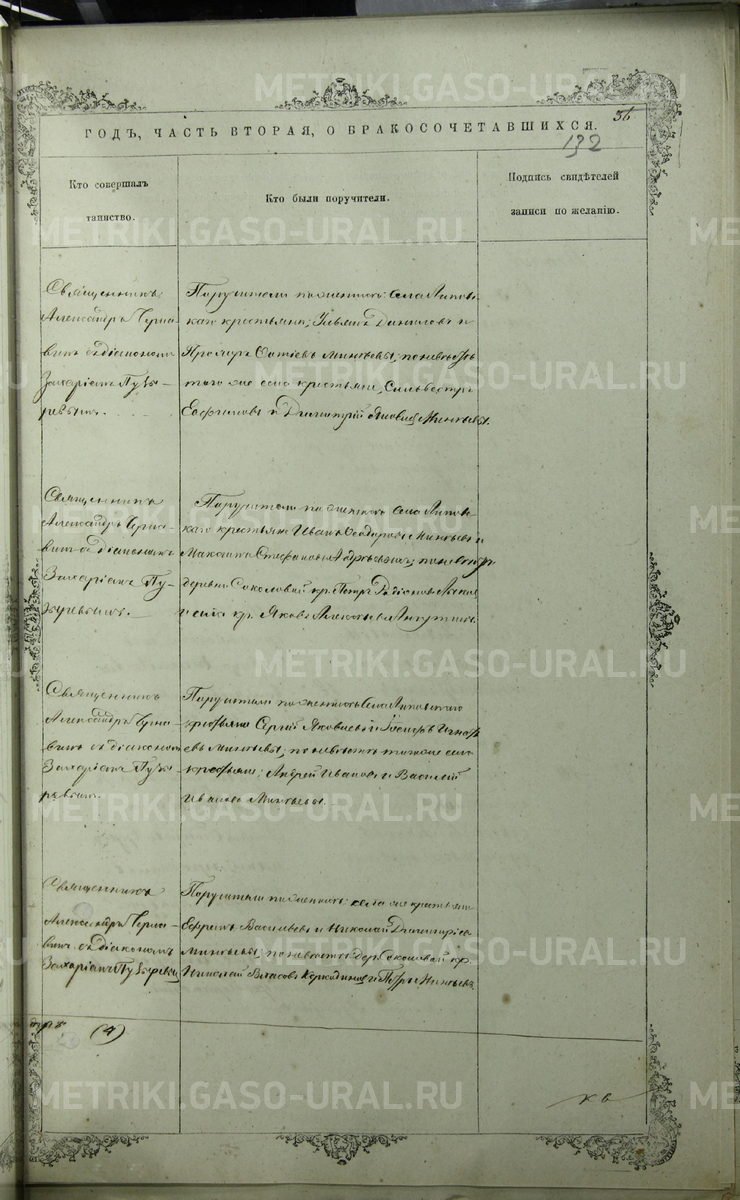 METRIKI.GASO-URAL.RU
56
ГОДЪ, ЧАСТЬ ВТОРАЯ, О БРАКОСОЧЕТАВШИХСЯ.
132
Кто совершалъ
таинство.
Кто были поручители.
Подпись свидѣтелей
записи по желанію.
Священникъ
Александръ Черно-
вичъ съ діакономъ
Захаріемъ Пузы-
ревымъ.
Поручители по женихѣ: села Липов-
каго крестьяне; Ульянъ Даниловъ и
Минѣевы; по невѣстѣ
того же села крестьяне, Сильвестръ
и Димитрій Яковлевъ Минѣевы.
Священникъ
Александръ Черно-
вичъ съ діакономъ
Захаріемъ Пу-
зыревымъ.
Поручители по женихѣ села Липов-
каго крестьяне Иванъ Ѳедоровъ Минѣевъ и
Стефановъ по невѣстѣ
деревни Соколовой кр. Петръ
и села кр. Яковъ
Священникъ
Александръ Черно-
вичъ съ діакономъ
Захаріемъ Пузы-
ревымъ.
Поручители по женихѣ села Липовскаго
крестьяне Сергій Яковлевъ и Игнать-
евъ Минѣевы; по невѣстѣ того же села
крестьяне; Андрей Ивановъ и Василій
Ивановъ Минѣевы.
Священникъ
Александръ Черно-
вичъ съ діакономъ
Захаріемъ Пузыревымъ
Поручители по женихѣ: села крестьяне
Ефремъ Васильевъ и Николай Димитріевъ
Минѣевы; по невѣстѣ дер. кр.
Николай Власовъ и Петръ
(4)